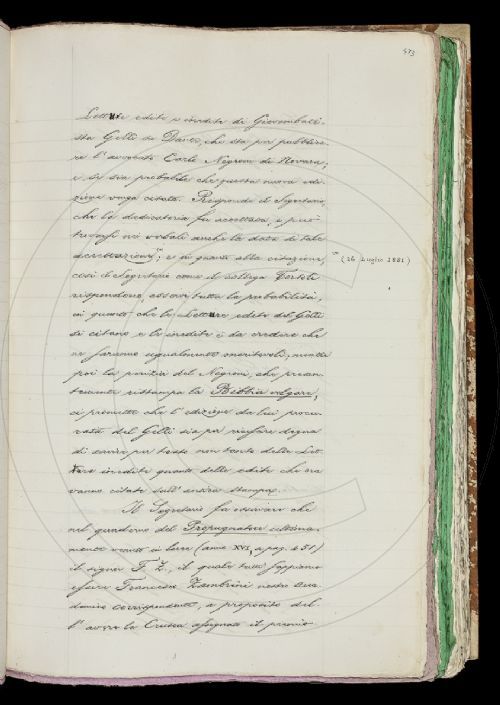 473
Letture edite e inedite di Giovambati-
sta Gelli su Dante, che sta per pubblica-
re l' avvocato Carlo Negroni di Novara,
e se sia probabile che questa nuova edi-
zione venga citata. Risponde il Segretario,
che la dedicatoria fu accettata, e può
trovarsi nei verbali anche la data di tale
accettazione; e in quanto alla citazione,
(26 Luglio 1881)
così il Segretario come il collega Tortoli
rispondono esservi tutta la probabilità,
in quanto che le Letture edite del Gelli
si citano e le inedite è da credere che
ne saranno ugualmente meritevoli; mentre
poi la perizia del Negroni, che presen-
temente ristampa la Bibbia volgare,
ci promette che l' edizione da lui procu-
rata del Gelli sia per riuscire degna
di servir per testo non tanto delle Let-
ture inedite quanto delle edite che era-
vanno citate sull' antica stampa.
Il Segretario fa osservare che
nel quaderno del Propugnatore ultima-
mente venuto in luce (anno XVI, a pag. 451)
il signor F. Z., il quale tutti sappiamo
essere Francesco Zambrini nostro Acca-
demico corrispondente, a proposito del
l' avere la Crusca assegnato il premio